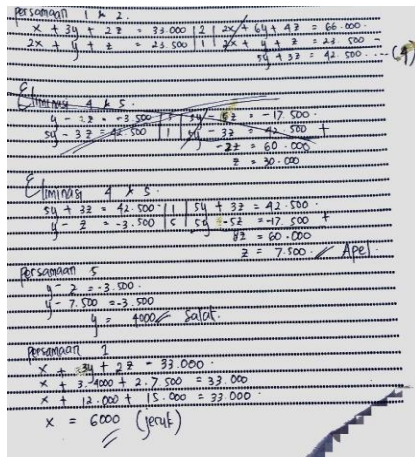 persamaan 1 & 2.
x + 3y + 2z = 33.000 | 2 | 2x + 6y + 4z = 66.000.
2x + y + z = 23.500 | 1 | 2x + y + z = 23.500 -
5y + 3z = 42.500 ... (4)
Eliminasi 4 & 5.
y - z = -3.500 | 5y - 5z = -17.500
5y - 3z = 42.500 | 1 | 5y - 3z = 42.500 +
-2z = 60.000
z = 30.000
Eliminasi 4 & 5.
5y + 3z = 42.500 | 1 | 5y + 3z = 42.500.
y - z = -3.500 | 5 | 5y - 5z = -17.500 +
8z = 60.000
z = 7.500. Apel.
persamaan 5
y - z = -3.500.
y - 7.500 = -3.500
y = 4000 Salak.
persamaan 1
x + 3y + 2z = 33.000.
x + 3.4000 + 2.7.500 = 33.000
x + 12.000 + 15.000 = 33.000.
x = 6000 (jeruk)